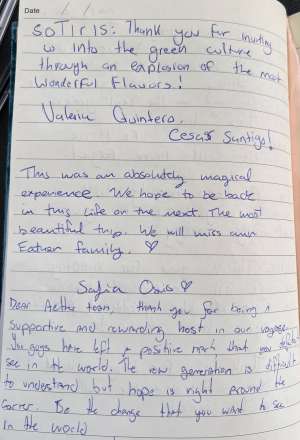 Date / /
SOTIRIS: Thank you for inviting
us into the green culture
through an explosion of the most
Wonderful Flavors!
Valeria Quintero.
Cesar Santiago!
This was an absolutely magical
experience. We hope to be back
in this life or the next. The most
beautiful trip. We will miss our
family. ♡
Sofia ♡
Dear Aether team, thank you for being a
supportive and rewarding host in our voyage.
You guys have left a positive mark that you
see in the world. The new generation is difficult
to understand but hope is right around the
corner. Be the change that you want to see
in the world